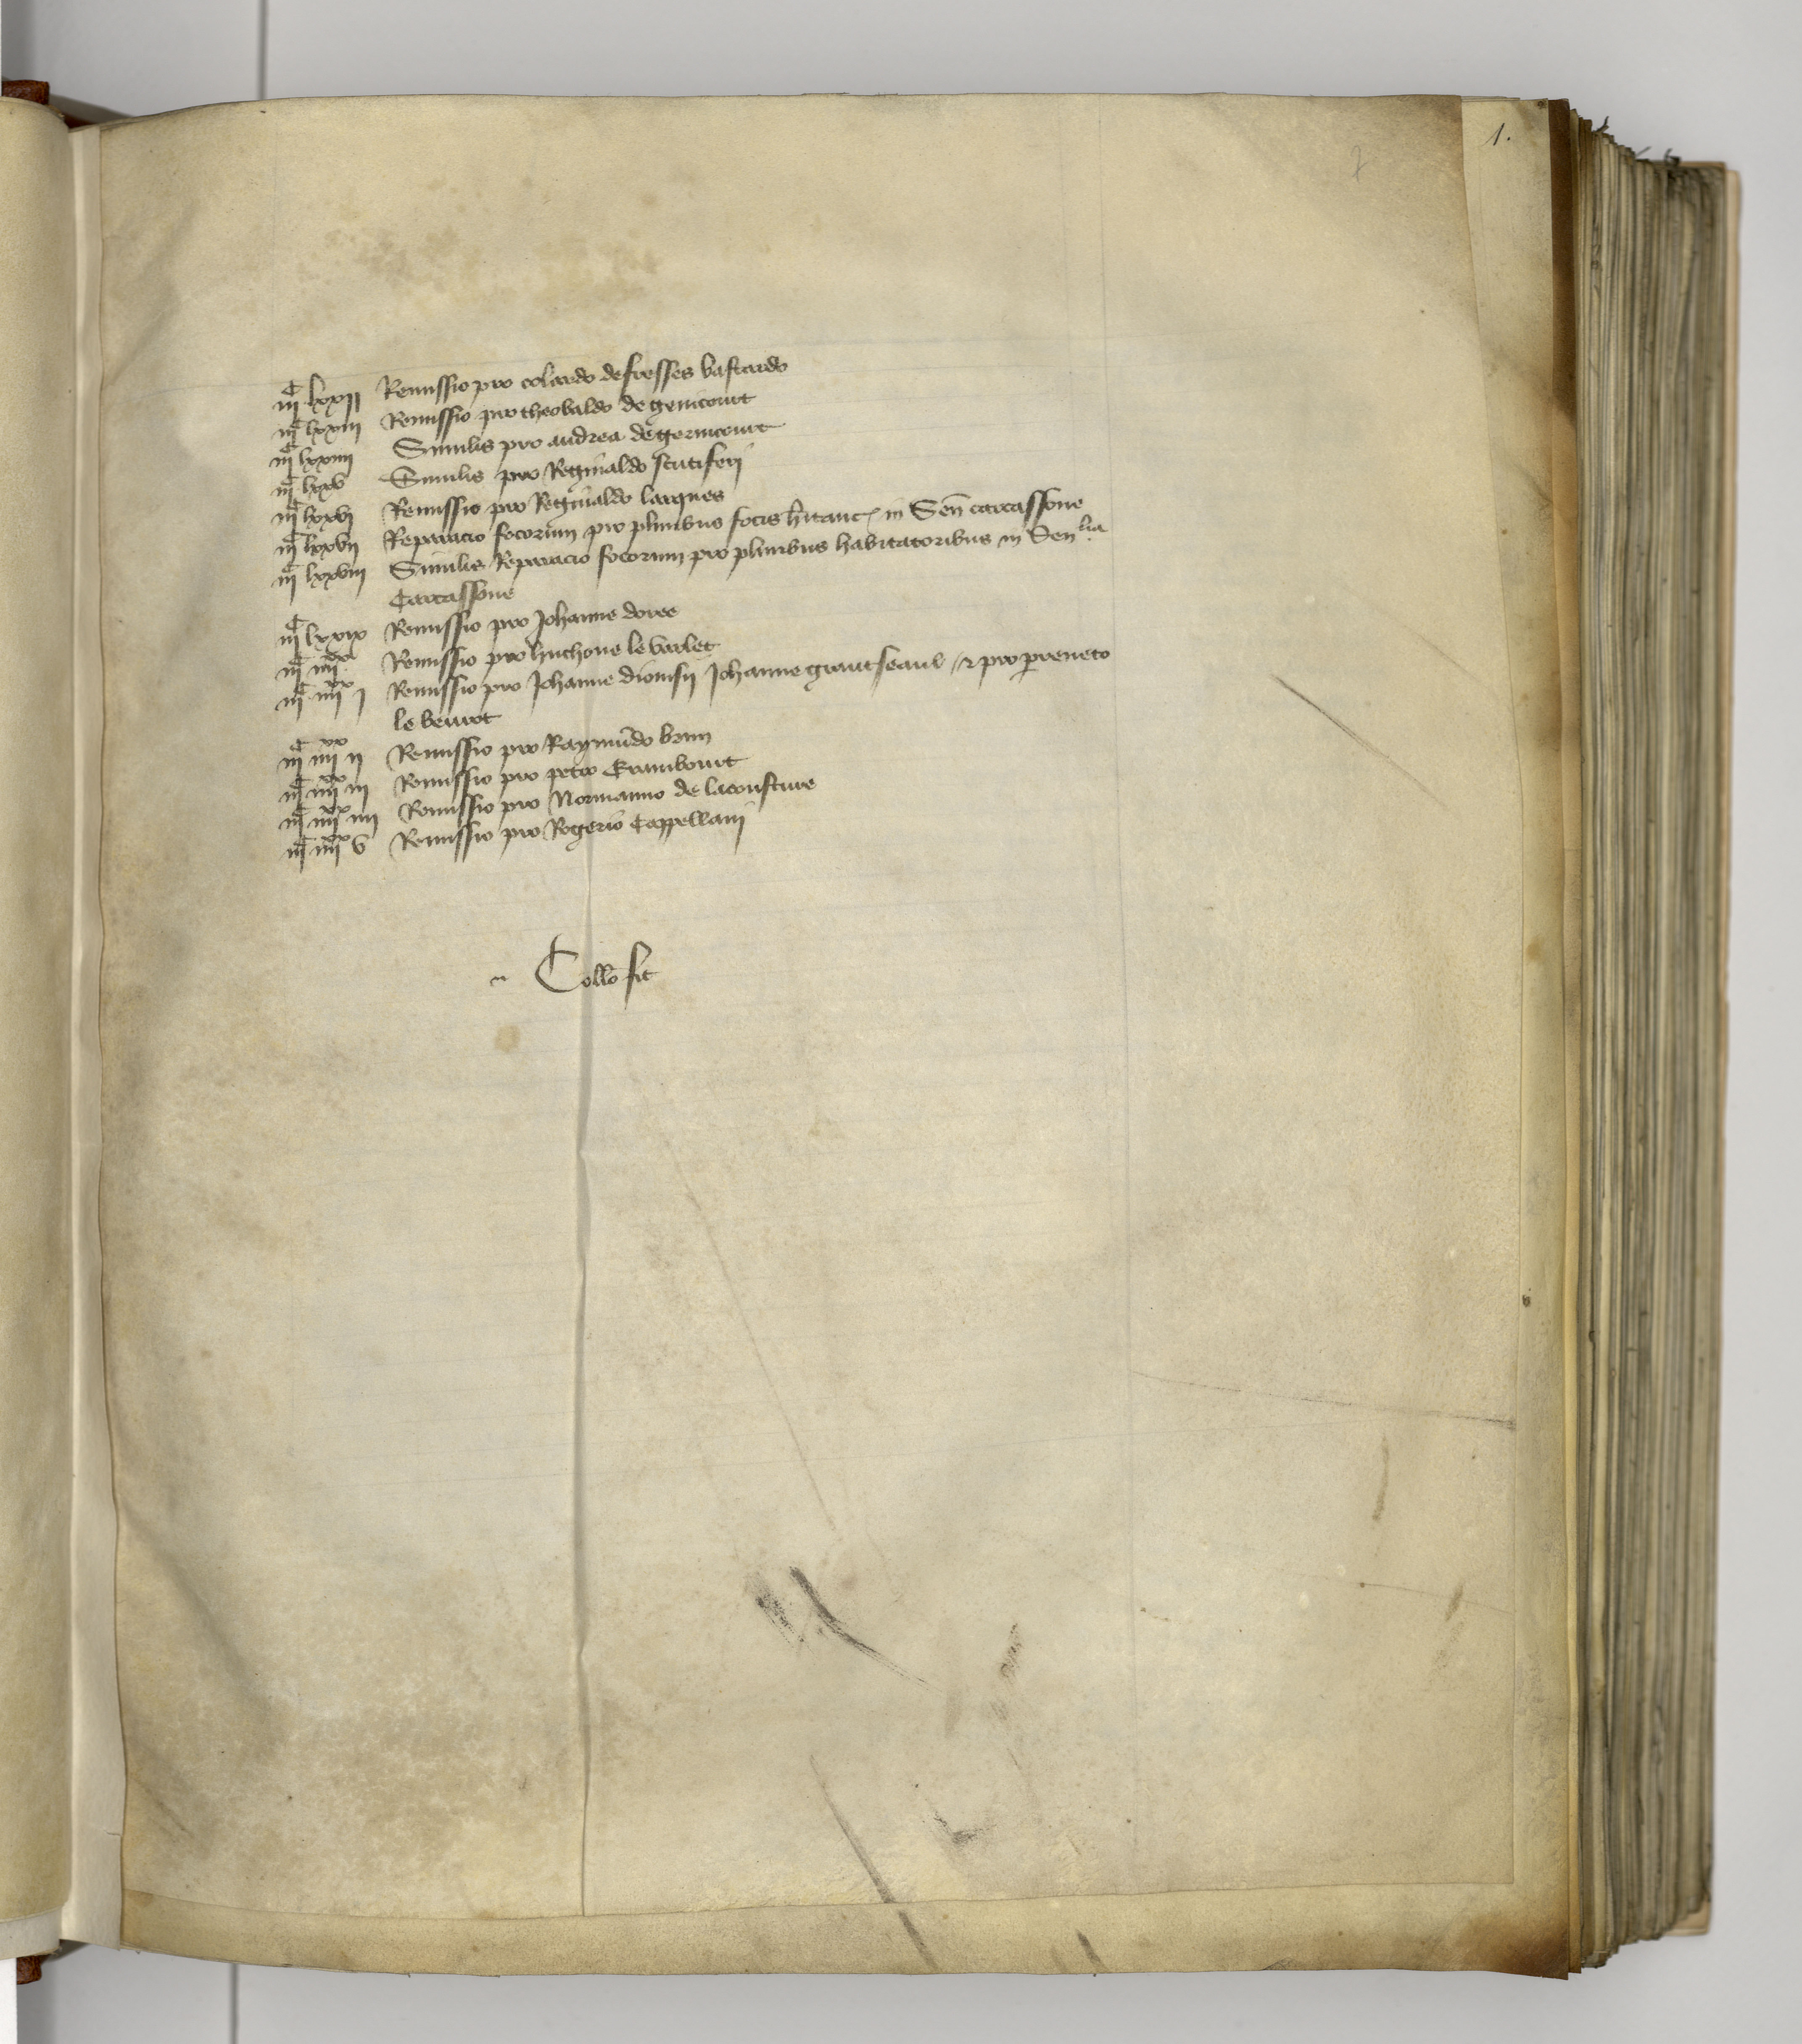 7
1.
iijᶜ lxxij Remissio pro colardo de fresses bastardo
iijᶜ lxxiij Remissio pro theobaldo de genicourt
iijᶜ lxxiiij Similis pro andrea de gernicourt
iijᶜ lxxv Similis pro Reginaldo scutiferi
iijᶜ lxxvj Remissio pro Reginaldo larques
iijᶜ lxxvij Reparacio focorum pro pluribus focis in Sen̄ carcassone
iijᶜ lxxviij Similis Reparacio focorum pro pluribus habitatoribus in Senˡˡⁱᵃ
Carcassone
iijᶜ lxxix Remissio pro Johanne doree
iijᶜ iiijˣˣ Remissio pro huchone le varlet
iijᶜ iiijˣˣ j Remissio pro Johanne dionisij Johanne grantseaul & pro perreneto
le
iijᶜ iiijˣˣ ij Remissio pro Raymūdo brun
iijᶜ iiijˣˣ iij Remissio pro petro Erambourt
iijᶜ iiijˣˣ iiij Remissio pro Normanno de la cousture
iijᶜ iiijˣˣ v Remissio pro Rogerio Cappellani
Collō fit